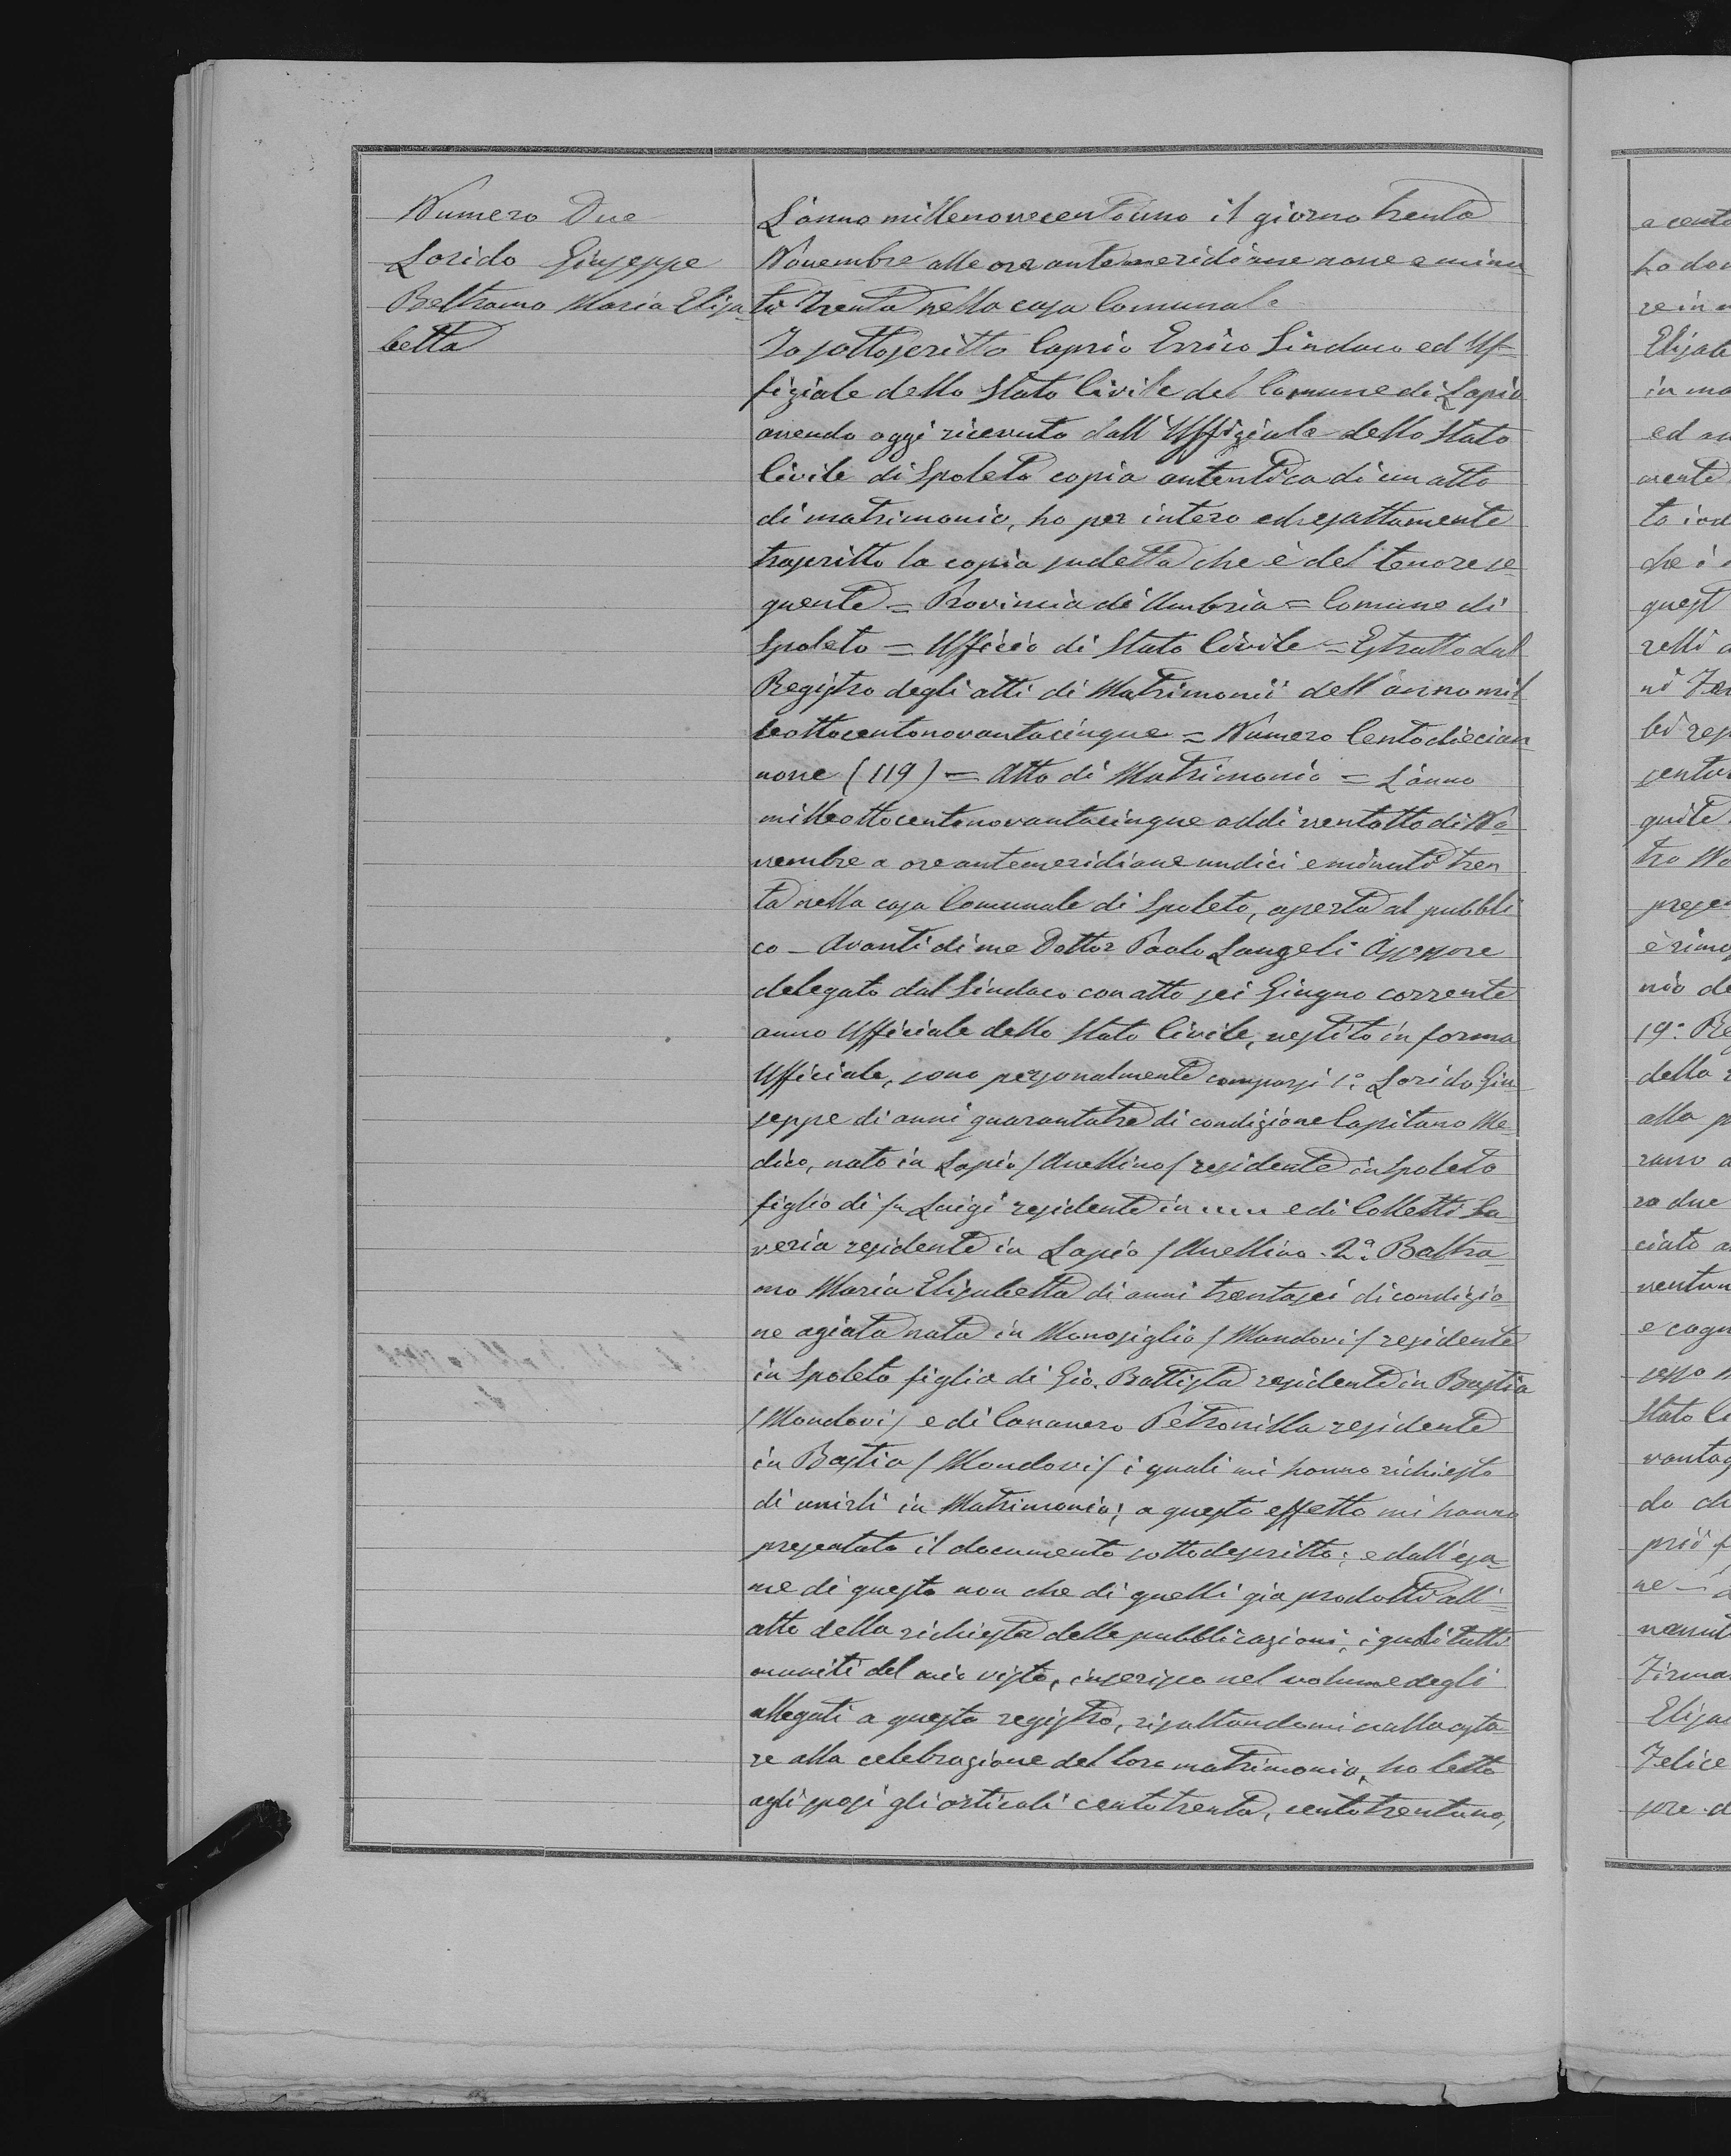 Numero Due
Lorido Giuseppe
Beltramo Maria Elisa-
betta
L'anno millenovecentouno il giorno trenta
Novembre alle ore antemeridiane nove e minu
ti trenta nella casa Comunale
Io sottoscritto Caprio Errico Sindaco ed Uf-
fiziale dello Stato Civile del Comune di Lapio
avendo oggi ricevuto dall'Uffiziale dello Stato
Civile di Spoleto copia autentica di un atto
di matrimonio, ho per intero ed esattamente
trascritto la copia sudetta che è del tenore se-
guente = Provincia di Umbria = Comune di
Spoleto = Officio di Stato Civile = Estratto dal
Registro degli atti di Matrimonii dell'anno mil
leottocentonovantacinque = Numero Centodician
nove (119) = Atto di Matrimonio = L'anno
milleottocentonovantacinque addi ventotto di No-
vembre a ore antemeridiane undici e minuti tren
ta nella casa Comunale di Spoleto, aperta al pubbli
co - Avanti di me Dottor Paolo Langeli Assessore
delegato dal Sindaco con atto sei Giugno corrente
anno Ufficiale dello Stato Civile, vestito in forma
Ufficiale, sono personalmente comparsi 1º Lorido Giu
seppe di anni quarantatre di condizione Capitano Me-
dico, nato in Lapio (Avellino) residente in Spoleto
figlio di fu Luigi residente in e di Colletti Sa-
veria residente in Lapio (Avellino. 2ª Beltra-
mo Maria Elisabetta di anni trentasei di condizio-
ne agiata nata in Monasiglio (Mondovi) residente
in Spoleto figlia di Gio. Battista residente in Bastia
(Mondovi) e di Cananero Petronilla residente
in Bastia (Mondovi) i quali mi hanno richiesto
di unirli in Matrimonio; a questo effetto mi hanno
presentato il documento sottodescritto; e dall'esa-
me di questo non che di quelli già prodotti all'-
atto della richiesta delle pubblicazioni, i quali tutti
muniti del mio visto, inserisco nel volume degli
allegati a questo registro, risultandomi nulla osta-
re alla celebrazione del loro matrimonio, ho letto
agli sposi gli articoli centotrenta, centotrentuno,